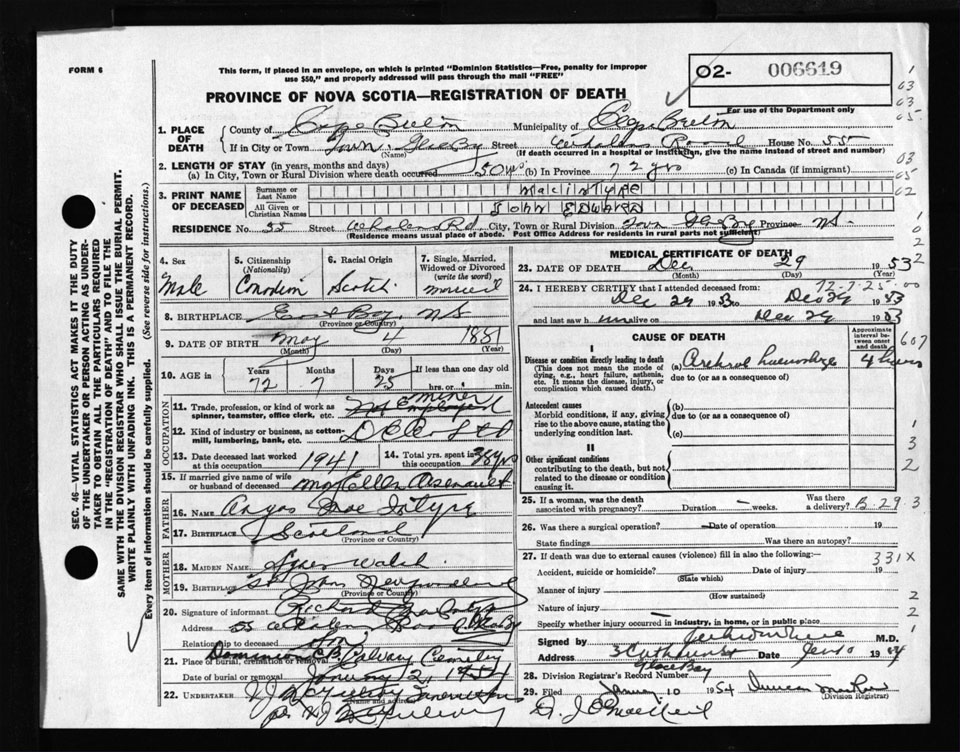 FORM 6
This form, if placed in an envelope, on which is printed "Dominion Statistics—Free, penalty for improper
use $50," and properly addressed will pass through the mail "FREE"
O2- 006619
For use of the Department only
PROVINCE OF NOVA SCOTIA—REGISTRATION OF DEATH
1. PLACE OF DEATH
County of Cape Breton Municipality of Cape Breton
If in City or Town Town. Glace Bay Street Whalens Road House No. 55
(Name) (If death occurred in a hospital or institution, give the name instead of street and number)
2. LENGTH OF STAY (in years, months and days)
(a) In City, Town or Rural Division where death occurred 50 yrs (b) In Province 72 yrs (c) In Canada (if immigrant)
3. PRINT NAME OF DECEASED
Surname or Last Name MacIntyre
All Given or Christian Names JOHN EDWARD
RESIDENCE No. 55 Street Whalens Rd. City, Town or Rural Division Town Glace Bay Province NS.
(Residence means usual place of abode. Post Office Address for residents in rural parts not sufficient)
4. Sex Male
5. Citizenship (Nationality) Canadian
6. Racial Origin Scotch
7. Single, Married, Widowed or Divorced (write the word) married
8. BIRTHPLACE East Bay, NS
(Province or Country)
9. DATE OF BIRTH May 4 1881
(Month) (Day) (Year)
10. AGE in Years Months Days If less than one day
72 7 25 hrs. or min.
OCCUPATION
11. Trade, profession, or kind of work as spinner, teamster, office clerk, etc. Miner
12. Kind of industry or business, as cotton-mill, lumbering, bank, etc.
13. Date deceased last worked at this occupation 1941
14. Total yrs. spent in this occupation 38 yrs
15. If married give name of wife or husband of deceased Mary Ellen Arsenault
FATHER
16. NAME Angus MacIntyre
17. BIRTHPLACE Scotland
(Province or Country)
MOTHER
18. MAIDEN NAME Agnes Walsh
19. BIRTHPLACE St. Johns Newfoundland
(Province or Country)
20. Signature of informant Richard MacIntyre
Address 55 Whalens Road
Relationship to deceased Son
21. Place of burial, cremation or removal Dominion CB Calvary Cemetery
Date of burial or removal January 2, 1954
22. UNDERTAKER
(Name and address)
MEDICAL CERTIFICATE OF DEATH
23. DATE OF DEATH Dec 29 1953
(Month) (Day) (Year)
72-7-25-00
24. I HEREBY CERTIFY that I attended deceased from
Dec 29 1953 to Dec 29 1953
and last saw him alive on Dec 29 1953
CAUSE OF DEATH
Approximate interval between onset and death
I
Disease or condition directly leading to death
(This does not mean the mode of dying, e.g., heart failure, asthenia, etc. It means the disease, injury, or complication which caused death.)
(a) Cerebral haemorrhage 4 hours
due to (or as a consequence of)
Antecedent causes
Morbid conditions, if any, giving rise to the above cause, stating the underlying condition last.
(b)
due to (or as a consequence of)
(c)
II
Other significant conditions
contributing to the death, but not related to the disease or condition causing it.
25. If a woman, was the death associated with pregnancy? Duration — weeks. Was there a delivery? B 29 3
26. Was there a surgical operation? — Date of operation 19
State findings Was there an autopsy?
27. If death was due to external causes (violence) fill in also the following:—
331X
Accident, suicide or homicide? Date of injury 19
(State which)
Manner of injury
(How sustained)
Nature of injury
Specify whether injury occurred in industry, in home, or in public place
Signed by M.D.
Address Glace Bay Date Jan 10 1954
28. Division Registrar's Record Number
29. Filed January 10 1954
(Division Registrar)
SEC. 46—VITAL STATISTICS ACT MAKES IT THE DUTY
OF THE UNDERTAKER OR PERSON ACTING AS UNDER-
TAKER TO OBTAIN ALL THE PARTICULARS REQUIRED
IN THE "REGISTRATION OF DEATH" AND TO FILE THE
SAME WITH THE DIVISION REGISTRAR WHO SHALL ISSUE THE BURIAL PERMIT.
WRITE PLAINLY WITH UNFADING INK. THIS IS A PERMANENT RECORD.
Every item of information should be carefully supplied. (See reverse side for instructions.)